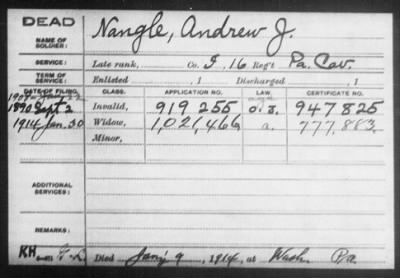 DEAD
Nangle, Andrew J.
NAME OF SOLDIER:
SERVICE:
Late rank, Co. I, 16 Reg't Pa. Cav.
TERM OF SERVICE:
Enlisted , 1 Discharged , 1
DATE OF FILING. CLASS. APPLICATION NO. LAW. CERTIFICATE NO.
1890 Sept 2 Invalid, 919 255 947825
1914 Jan. 30 Widow, 1,021,466 a. 777,883.
Minor,
ADDITIONAL SERVICES:
REMARKS:
KH Died Jany 9, 1914, at Wash. Pa.